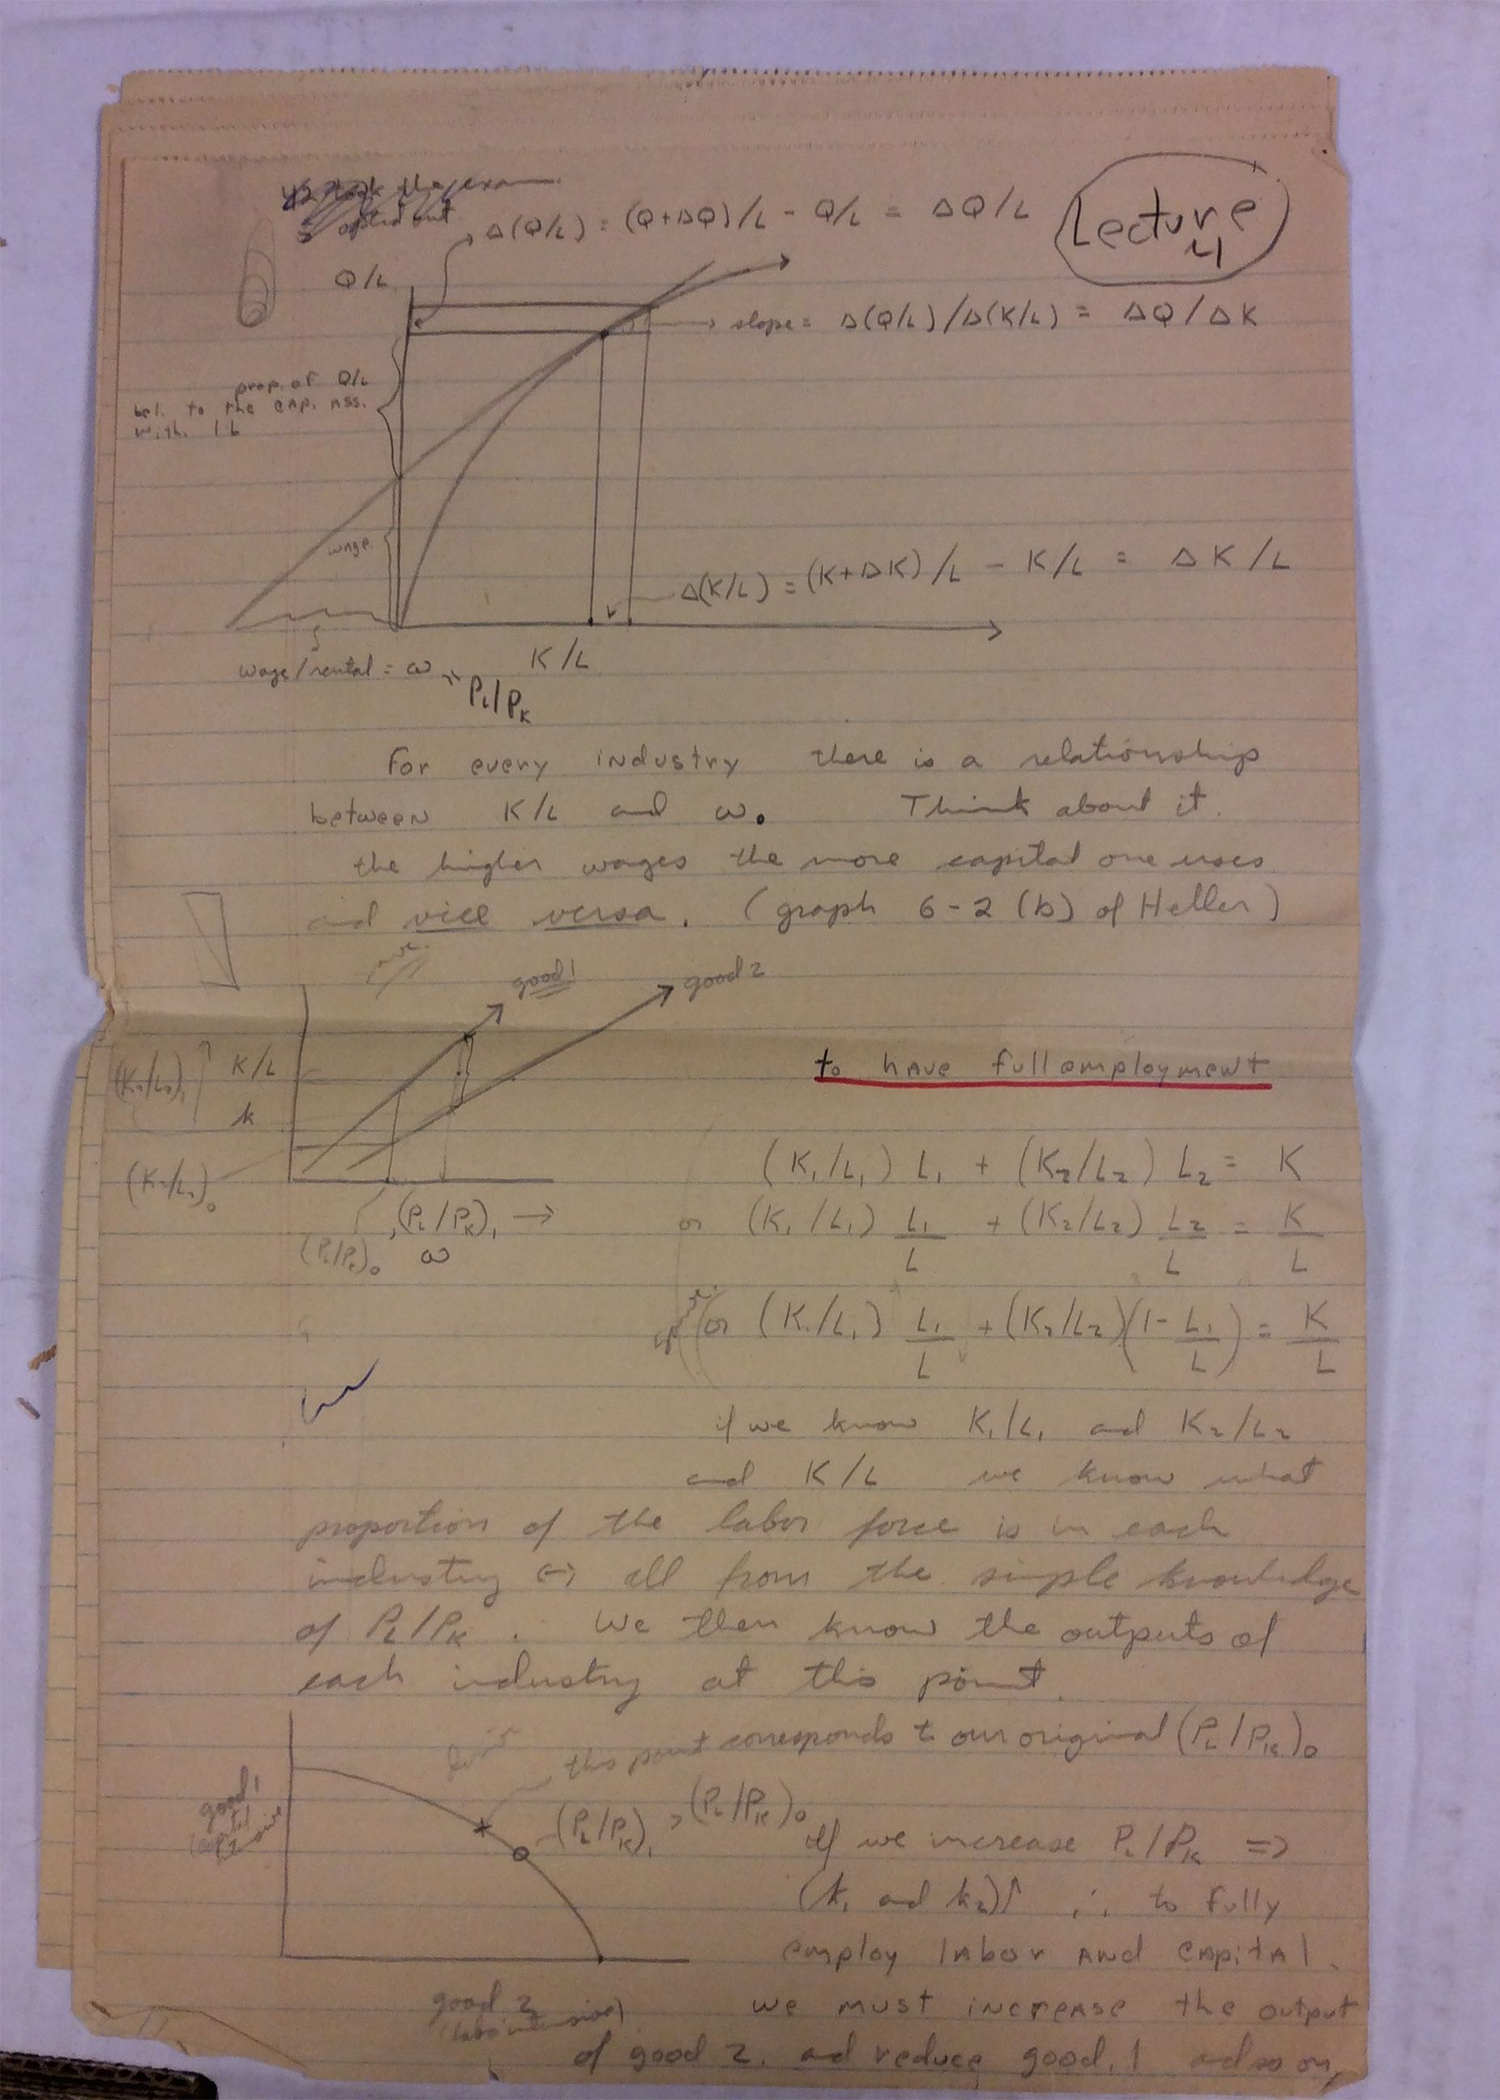 Lecture 4
Δ(Q/L) = (Q+ΔQ)/L - Q/L = ΔQ/L
Q/L
slope = Δ(Q/L)/Δ(K/L) = ΔQ/ΔK
prop. of Q/L
bel. to the cap. ass.
with 1 L
wage
Δ(K/L) = (K+ΔK)/L - K/L = ΔK/L
K/L
wage/rental = ω
PL/PK
For every industry there is a relationship
between K/L and ω. Think about it.
the higher wages the more capital one uses
and vice versa. (graph 6-2 (b) of Heller)
good 1
good 2
K/L
k
(PL/PK)₁ →
(PL/PK)₀ ω
to have full employment
(K₁/L₁) L₁ + (K₂/L₂) L₂ = K
or (K₁/L₁) L₁/L + (K₂/L₂) L₂/L = K/L
or (K₁/L₁) L₁/L + (K₂/L₂)(1 - L₁/L) = K/L
if we know K₁/L₁ and K₂/L₂
and K/L we know what
proportion of the labor force is in each
industry ↔ all from the simple knowledge
of PL/PK. We then know the outputs of
each industry at this point.
this point corresponds to our original (PL/PK)₀
good 1
(PL/PK)₁ > (PL/PK)₀
If we increase PL/PK ⇒
(k₁ and k₂)↑ ∴ to fully
employ labor and capital.
good 2
(labor intensive)
we must increase the output
of good 2. and reduce good 1 and so on,